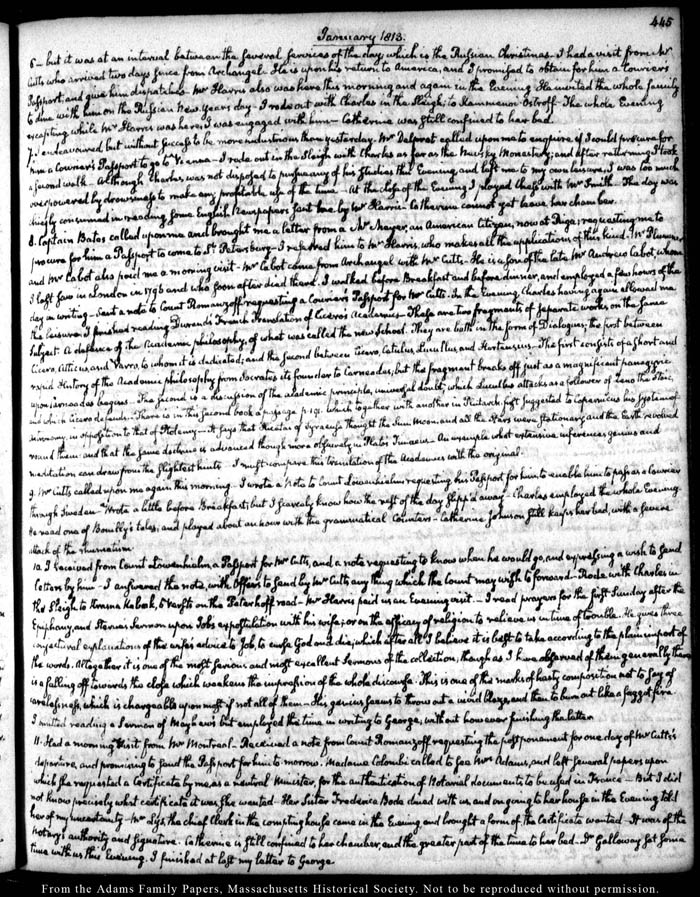 445
January 1813.
6 – but it was at an interval between the several services of the day, which is the Russian Christmas – I had a visit from Mr
Cutts who arrived two days since from Archangel. He is upon his return to America, and I promised to obtain for him a Couriers
Passport, and give him dispatches – Mr Harris also was here this morning and again in the Evening. He invited the whole family
to dine with him on the Russian New-years day – I rode out with Charles in the Sleigh, to Kammenoi Ostroff – The whole Evening
excepting while Mr Harris was here, I was engaged with him – Catherine was still confined to her bed.
7. I endeavoured but without success to be more industrious than yesterday. Mr Delprat called upon me to enquire if I would procure for
him a Courier's Passport to go to Vienna – I rode out in the Sleigh with Charles as far as the Nevsky Monastery; and after returning I took
a second walk – Although Charles was not disposed to pursue any of his Studies this Evening, and left me to my own leisure, I was too much
overpowered by drowsiness to make any profitable use of the time – At the close of the Evening I played chess with Mr Smith – The day was
chiefly consumed in reading some English Newspapers sent me by Mr Harris – Catherine cannot yet leave her chamber.
8. Captain Bates called upon me and brought me a letter from a Mr Meyer, an American Citizen, now at Riga; requesting me to
procure for him a Passport to come to St. Petersburg – I referred him to Mr Harris, who makes all the applications of this kind – Mr Plummer,
and Mr Cabot also paid me a morning visit – Mr Cabot came from Archangel with Mr Cutts – He is a son of the late Mr Andrew Cabot, whom
I last saw in London in 1796 and who soon after died there. I walked before Breakfast and before dinner, and employed a few hours of the
day in writing – Sent a note to Count Romanzoff requesting a Courier's Passport for Mr Cutts. In the Evening, Charles having again allowed me
the leisure I finished reading Durand's French Translation of Cicero's Academics – These are two fragments of separate works on the same
subject. A defence of the Academic philosophy, of what was called the new School. They are both in the form of Dialogues; the first between
Cicero, Atticus, and Varro, to whom it is dedicated; and the second between Cicero, Catulus, Lucullus and Hortensius – The first consists of a short and
rapid History of the Academic philosophy from Socrates its founder to Carneades, but the fragment breaks off just as a magnificent panegyric
upon Carneades begins – The second is a discussion of the academic principle, universal doubt, which Lucullus attacks as a follower of Zeno the Stoic,
and which Cicero defends – There is in this second book a passage p. 191. which together with another in Plutarch, first suggested to Copernicus his System of
Astronomy in opposition to that of Ptolemy – It says that Hicetas of Syracuse thought the Sun, Moon, and all the Stars were Stationary, and the Earth revolved
round them – and that the same doctrine is advanced though more obscurely, in Plato's Timaeus – An example what extensive inferences genius and
meditation can draw from the slightest hints – I must compare this translation of the Academics with the original.
9. Mr Cutts called upon me again this morning. I wrote a Note to Count Lowenhielm requesting his Passport for him to enable him to pass as a Courier
through Sweden – Wrote a little before Breakfast; but I scarcely know how the rest of the day slipp'd away – Charles employed the whole Evening.
He read one of Bouilly's tales, and played about an hour with the grammatical Counters – Catherine Johnson still keeps her bed, with a severe
attack of the rheumatism.
10. I received from Count Lowenhielm, a Passport for Mr Cutts, and a note requesting to know when he would go, and expressing a wish to send
Letters by him – I answered the note, with Offers to send by Mr Cutts any thing which the Count may wish to forward – Rode with Charles in
the Sleigh to Krasna Kabak, 5 Versts on the Peterhoff road – Mr Harris paid us an Evening visit. – I read prayers for the first Sunday after the
Epiphany, and Sterne's Sermon upon Job's expostulation with his wife; or on the efficacy of religion to relieve us in time of trouble. He gives three
conjectural explanations of the wife's advice to Job, to curse God and die; which after all I believe it is best to take according to the plain import of
the words. Altogether it is one of the most serious and most excellent Sermons of the collection, though as I have observed of them generally there
is a falling off towards the close which weakens the impression of the whole discourse. This is one of the marks of hasty composition not to say of
carelessness, which is chargeable upon most if not all of them – His genius seems to throw out a vivid blaze, and then to burn out like a faggot fire
I omitted reading a Sermon of Mayhew's but employed the time in writing to George, without however finishing the letter.
11. Had a morning Visit from Mr Montreal – Received a note from Count Romanzoff requesting the postponement for one day of Mr Cutts's
departure, and promising to send the Passport for him to-morrow. Madame Colombi called to see Mrs Adams, and left several papers upon
which she requested a Certificate by me, as a neutral Minister, for the authentication of Notarial documents to be used in France – But I did
not know precisely what certificate it was she wanted – Her Sister Frederica Bode dined with us and on going to her house in the Evening told
her of my uncertainty – Mr Lys, the chief Clerk in the compting house came in the Evening and brought a form of the Certificate wanted – It was of the
Notary's authority and signature. Catherine is still confined to her chamber, and the greater part of the time to her bed – Dr Galloway sat some
time with us this Evening. I finished at last my letter to George
From the Adams Family Papers, Massachusetts Historical Society. Not to be reproduced without permission.